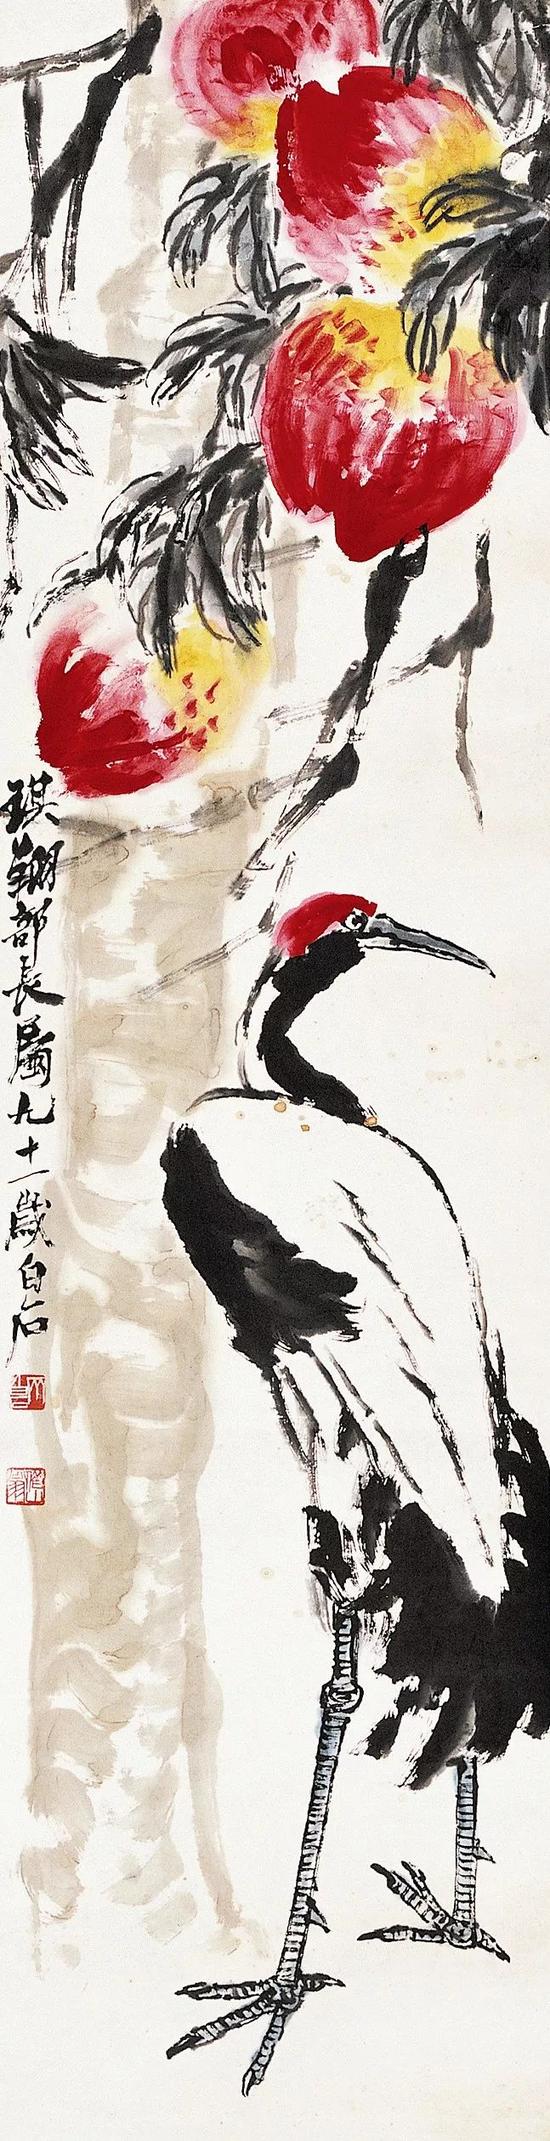 琪翔部長屬九十一歲白石